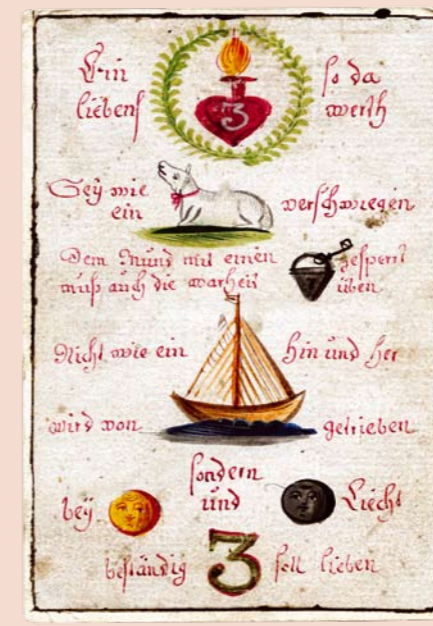 Ein so da
liebens 3 werth
Seÿ wie
ein verschwiegen
Dem Mund mit einen gesperrt
muß auch die warheit üben
Nicht wie ein hin und her
wird von getrieben
sondern
beÿ und Liecht
beständig 3 soll lieben